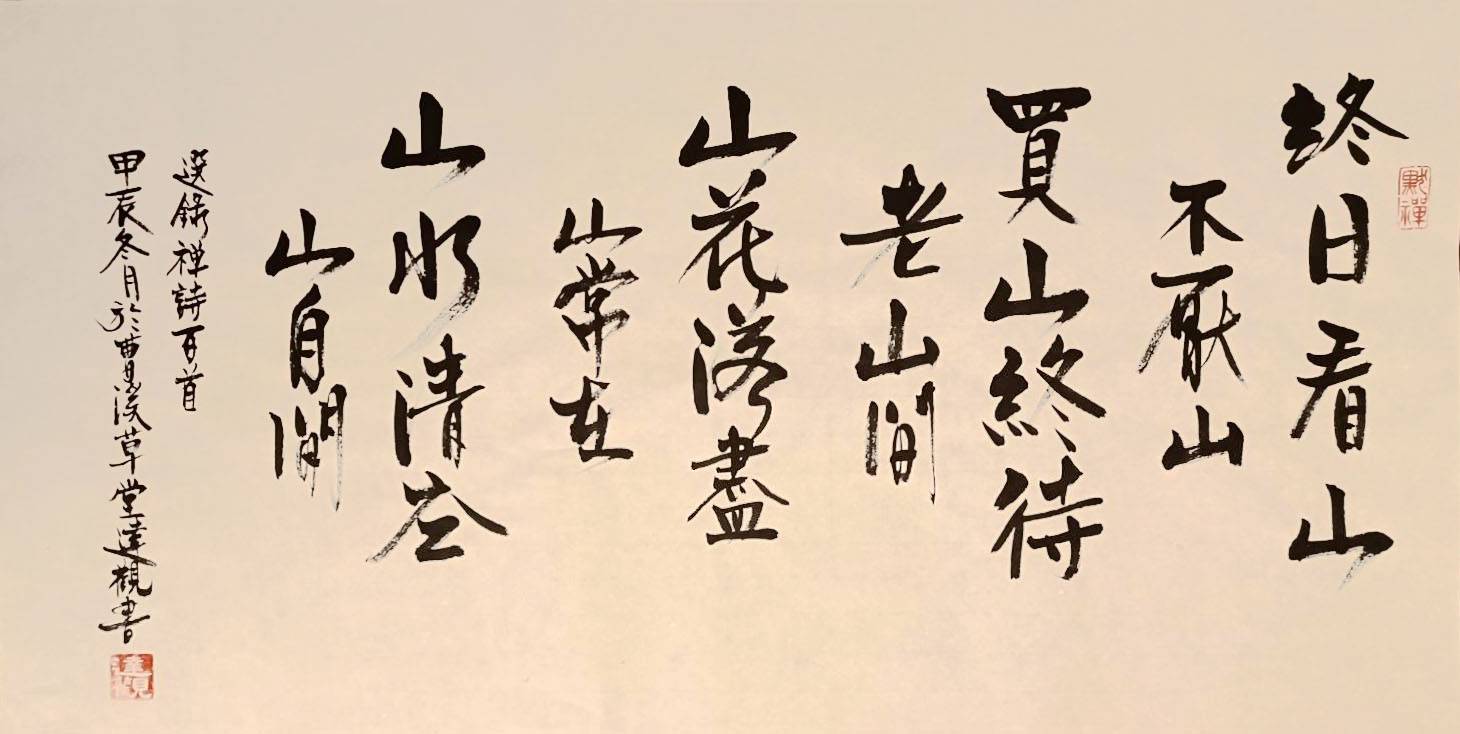 默禪
終日看山
不厭山
買山終待
老山間
山花落盡
山常在
山水清空
山自閒
選錄禪詩百首
甲辰冬月於曹溪草堂達觀書
達觀